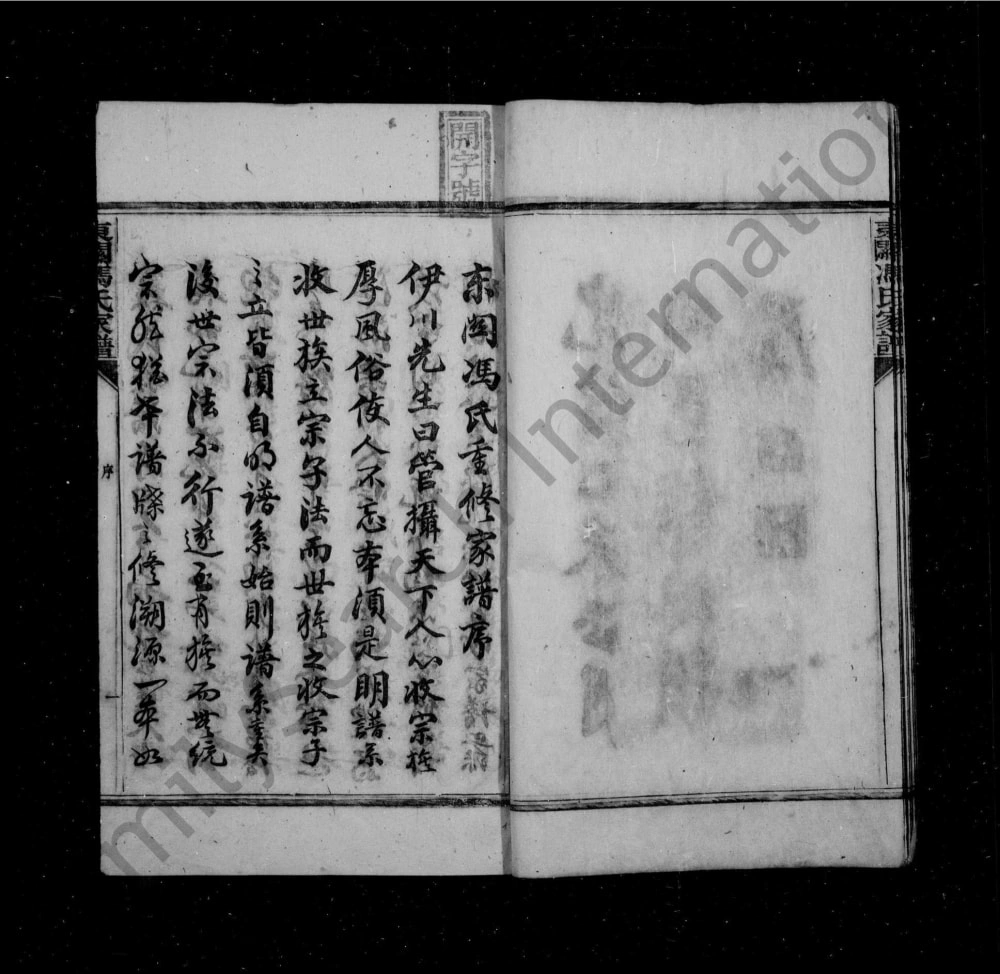 開字號
东関馮氏重修家譜序
伊川先生曰管攝天下人心收宗族
厚風俗使人不忘本須是明譜系
收世族立宗子法而世族之收宗子
之立皆須自明譜系始則譜系重矣
後世宗法不行遂至有族而無統
宗然猶幸譜牒之修溯源一本如
東関馮氏家譜
序
一
東関馮氏家譜
mily Search International